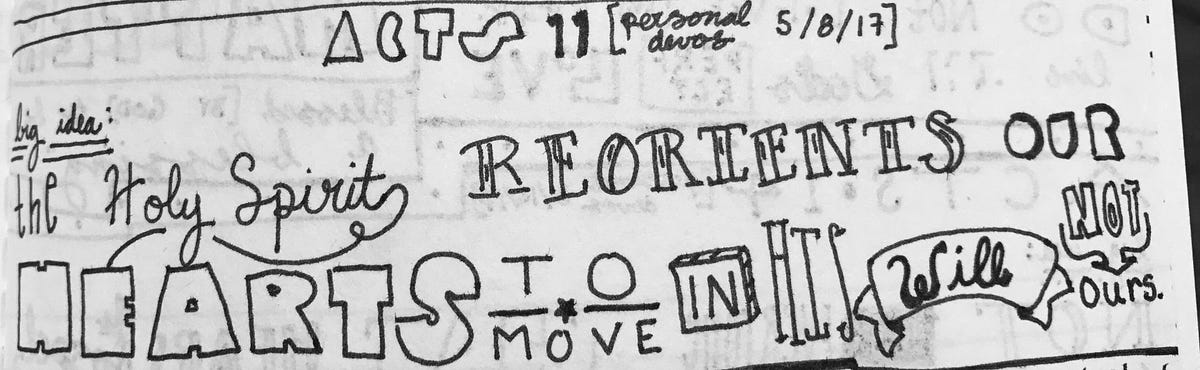 ACTS 11 [personal devos 5/8/17]
big idea:
the Holy Spirit REORIENTS OUR
HEARTS TO MOVE IN HIS Will NOT ours.